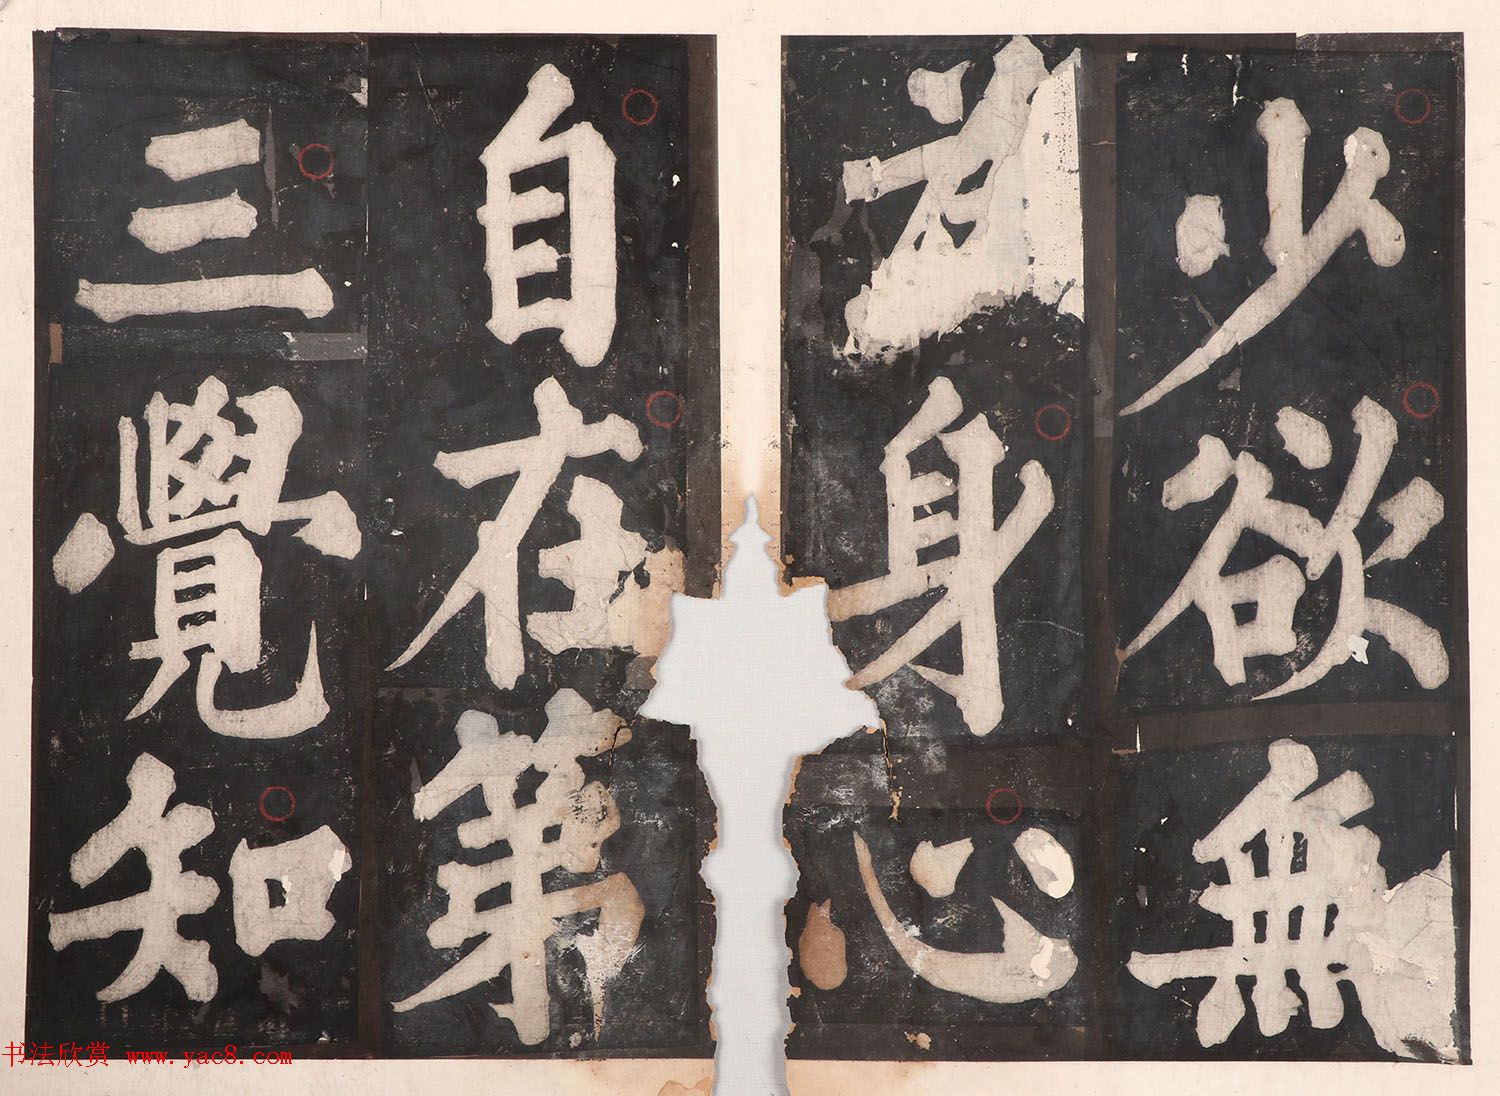 少欲無
身心
自在第
三覺知
书法欣赏 www.yac8.com